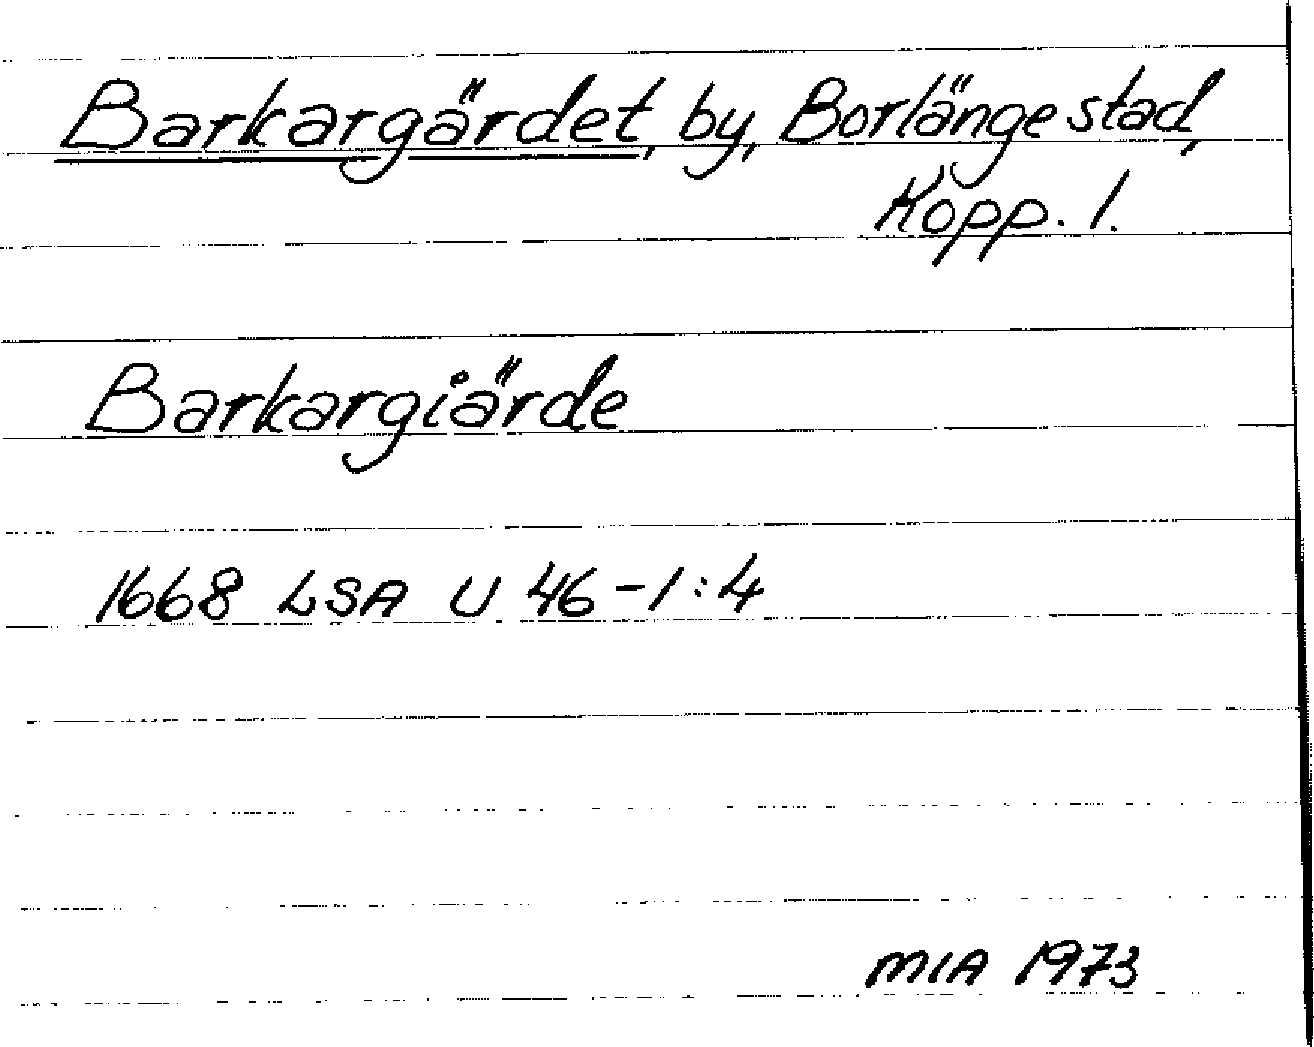 Barkargärdet, by, Borlänge stad,
Kopp. l.
Barkargiärde
1668 LSA U 46-1:4
MIA 1973